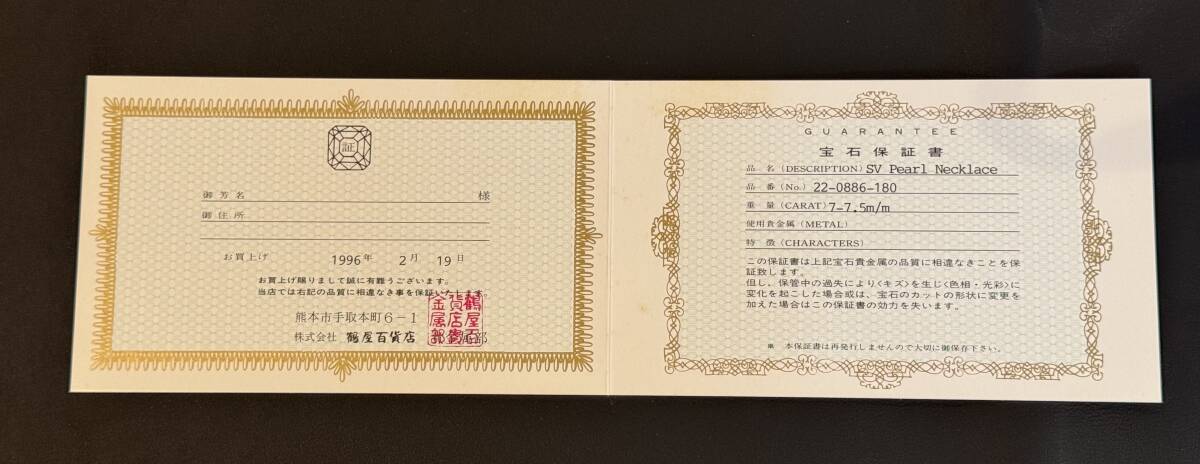 証
御芳名 様
御住所
お買上げ 1996年 2月 19日
お買上げ賜りまして誠に有難うございます。
当店では右記の品質に相違なき事を保証いたします。
熊本市手取本町6-1
株式会社 鶴屋百貨店
鶴屋百
貨店貴
金属部
GUARANTEE
宝石保証書
品名(DESCRIPTION) SV Pearl Necklace
品番(No.) 22-0886-180
重量(CARAT) 7-7.5m/m
使用貴金属(METAL)
特徴(CHARACTERS)
この保証書は上記宝石貴金属の品質に相違なきことを保
証致します。
但し、保管中の過失により〈キズ〉を生じ〈色相・光彩〉に
変化を起こした場合或は、宝石のカットの形状に変更を
加えた場合はこの保証書の効力を失います。
※ 本保証書は再発行しませんので大切に御保存下さい。